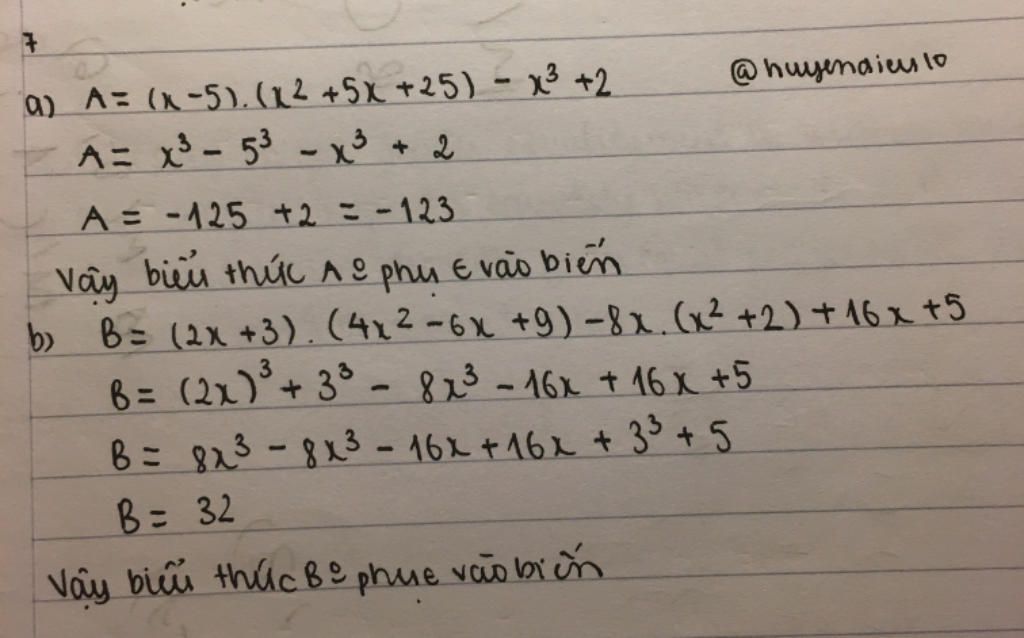 7
@huyenaieu10
a) A = (x - 5).(x² + 5x + 25) - x³ + 2
A = x³ - 5³ - x³ + 2
A = -125 + 2 = -123
Vậy biểu thức A º phụ ∈ vào biến
b) B = (2x + 3).(4x² - 6x + 9) - 8x.(x² + 2) + 16x + 5
B = (2x)³ + 3³ - 8x³ - 16x + 16x + 5
B = 8x³ - 8x³ - 16x + 16x + 3³ + 5
B = 32
Vậy biểu thức B º phụ ∈ vào biến